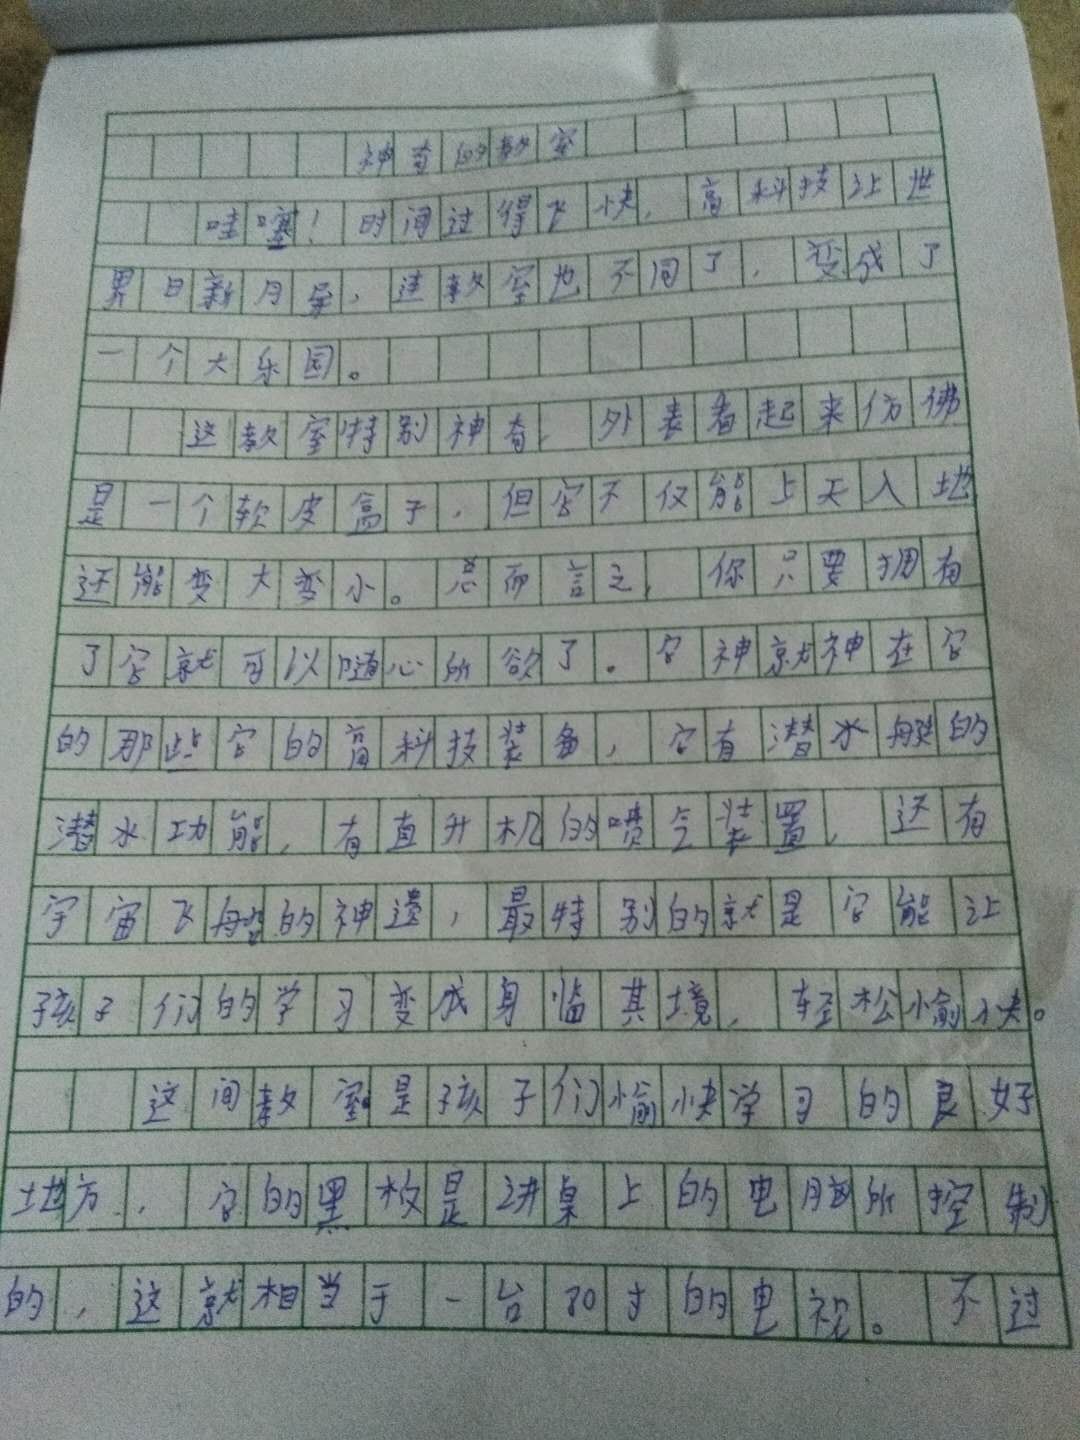 神奇的教室
哇噻！时间过得飞快，高科技让世
界日新月异，连教室也不同了，变成了
一个大乐园。
这教室特别神奇，外表看起来仿佛
是一个软皮盒子，但它不仅能上天入地
还能变大变小。总而言之，你只要拥有
了它就可以随心所欲了。它神就神在它
的那些它的高科技装备，它有潜水艇的
潜水功能，有直升机的喷气装置，还有
宇宙飞船的神速，最特别的就是它能让
孩子们的学习变成身临其境，轻松愉快。
这间教室是孩子们愉快学习的良好
地方，它的黑板是讲桌上的电脑所控制
的，这就相当于一台80寸的电视。不过